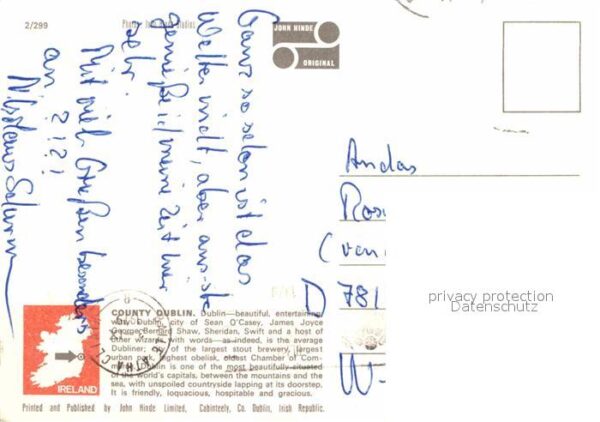 2/299
Photo: John Hinde Studios
JOHN HINDE
ORIGINAL
Ganz so schön ist das
Wetter nicht, aber
genieße ich meine Zeit hier
sehr.
Mit viel Grüßen besonders
an
Andas
Ros
(von
D 781
W-
privacy protection
Datenschutz
IRELAND
COUNTY DUBLIN. Dublin—beautiful, entertaining
Dublin, city of Sean O'Casey, James Joyce
George Bernard Shaw, Sheridan, Swift and a host of
other wizards with words—as indeed, is the average
Dubliner; city of the largest stout brewery, largest
urban park, highest obelisk, oldest Chamber of Com-
Dublin is one of the most beautifully situated
of the world's capitals, between the mountains and the
sea, with unspoiled countryside lapping at its doorstep.
It is friendly, loquacious, hospitable and gracious.
Printed and Published by John Hinde Limited, Cabinteely, Co. Dublin, Irish Republic.